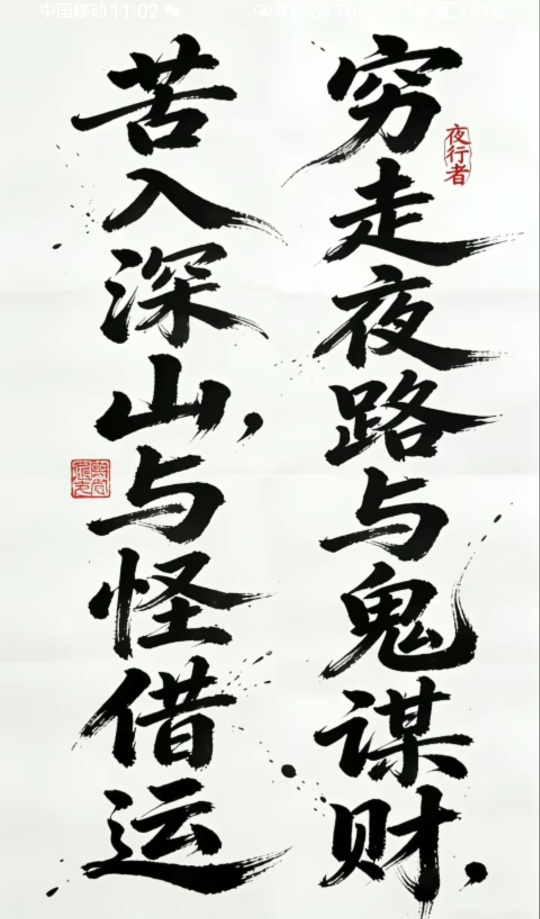 中国移动 11:02
穷走夜路与鬼谋财，
夜行者
苦入深山，与怪借运